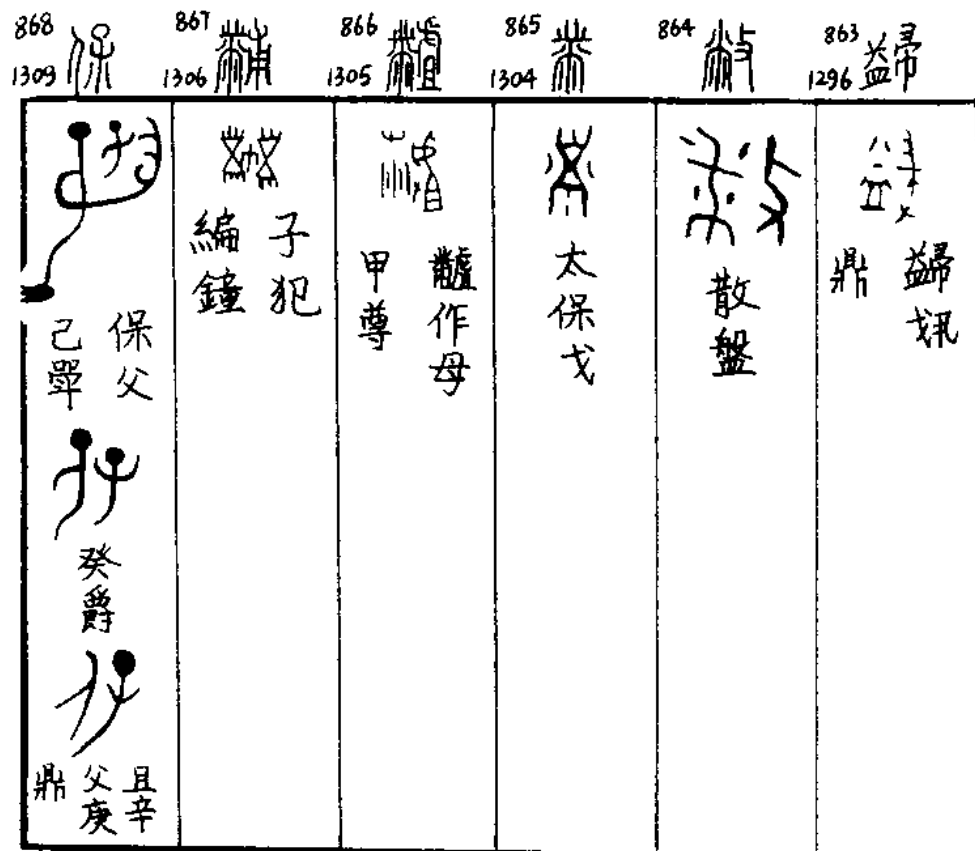 863
1296
鼎
864
敝
散盤
865
1304
黹
太保戈
866
1305
作母
甲尊
867
1306
黼
子犯
編鐘
868
1309
保
保父
己斝
癸爵
且辛
父庚
鼎